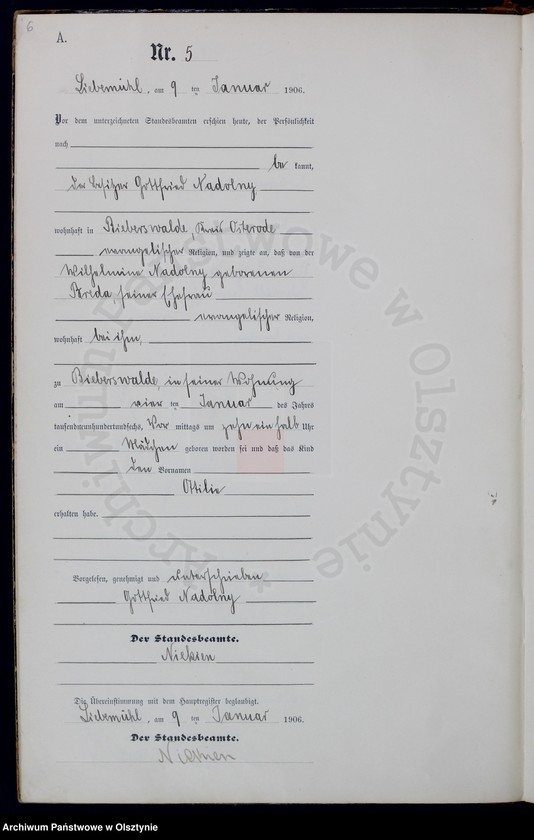 6
A.
Nr. 5
Liebemühl, am 9 ten Januar 1906.
Vor dem unterzeichneten Standesbeamten erschien heute, der Persönlichkeit
nach
be kannt,
der Besitzer Gottfried Nadolny
wohnhaft in Bieberswalde, Kreis Osterode
evangelischer Religion, und zeigte an, daß von der
Wilhelmine Nadolny geborenen
Breda, seiner Ehefrau
evangelischer Religion,
wohnhaft bei ihm,
zu Bieberswalde, in seiner Wohnung
am vier ten Januar des Jahres
tausendneunhundertundsechs, Vor mittags um zehn ein halb Uhr
ein Mädchen geboren worden sei und daß das Kind
den Vornamen
Ottilie
erhalten habe.
Vorgelesen, genehmigt und unterschrieben
Gottfried Nadolny
Der Standesbeamte.
Die Übereinstimmung mit dem Hauptregister beglaubigt.
Liebemühl, am 9 ten Januar 1906.
Der Standesbeamte.
Archiwum Państwowe w Olsztynie
Archiwum Państwowe w Olsztynie